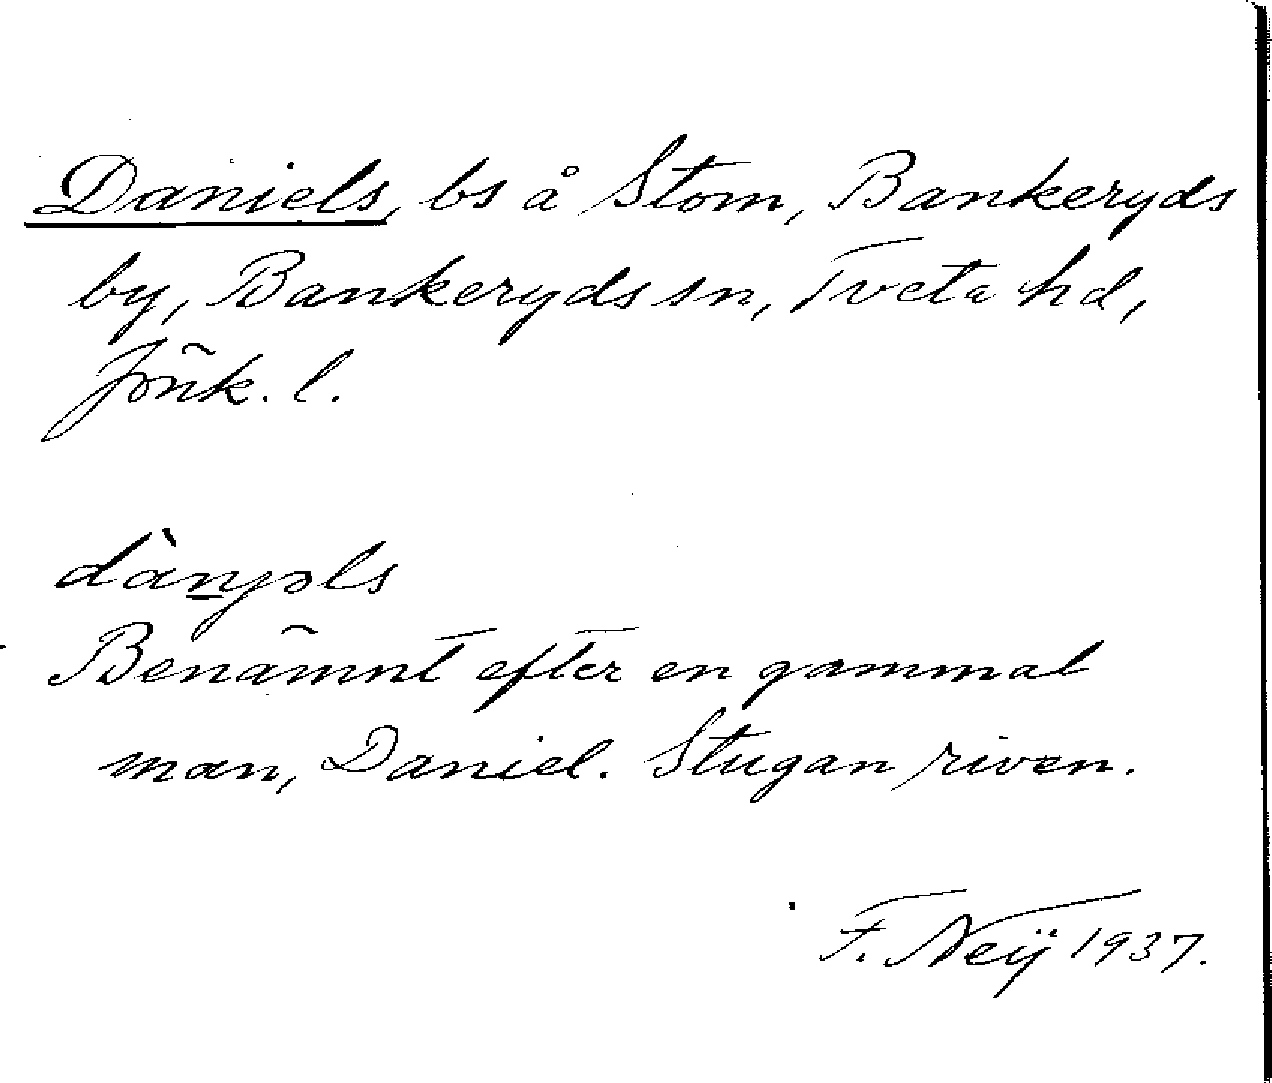 Daniels, bs å Stom, Bankeryds
by, Bankeryds sn, Tveta hd,
Jönk. l.
dànjəls
Benämnt efter en gammal
man, Daniel. Stugan riven.
F. Neÿ 1937.